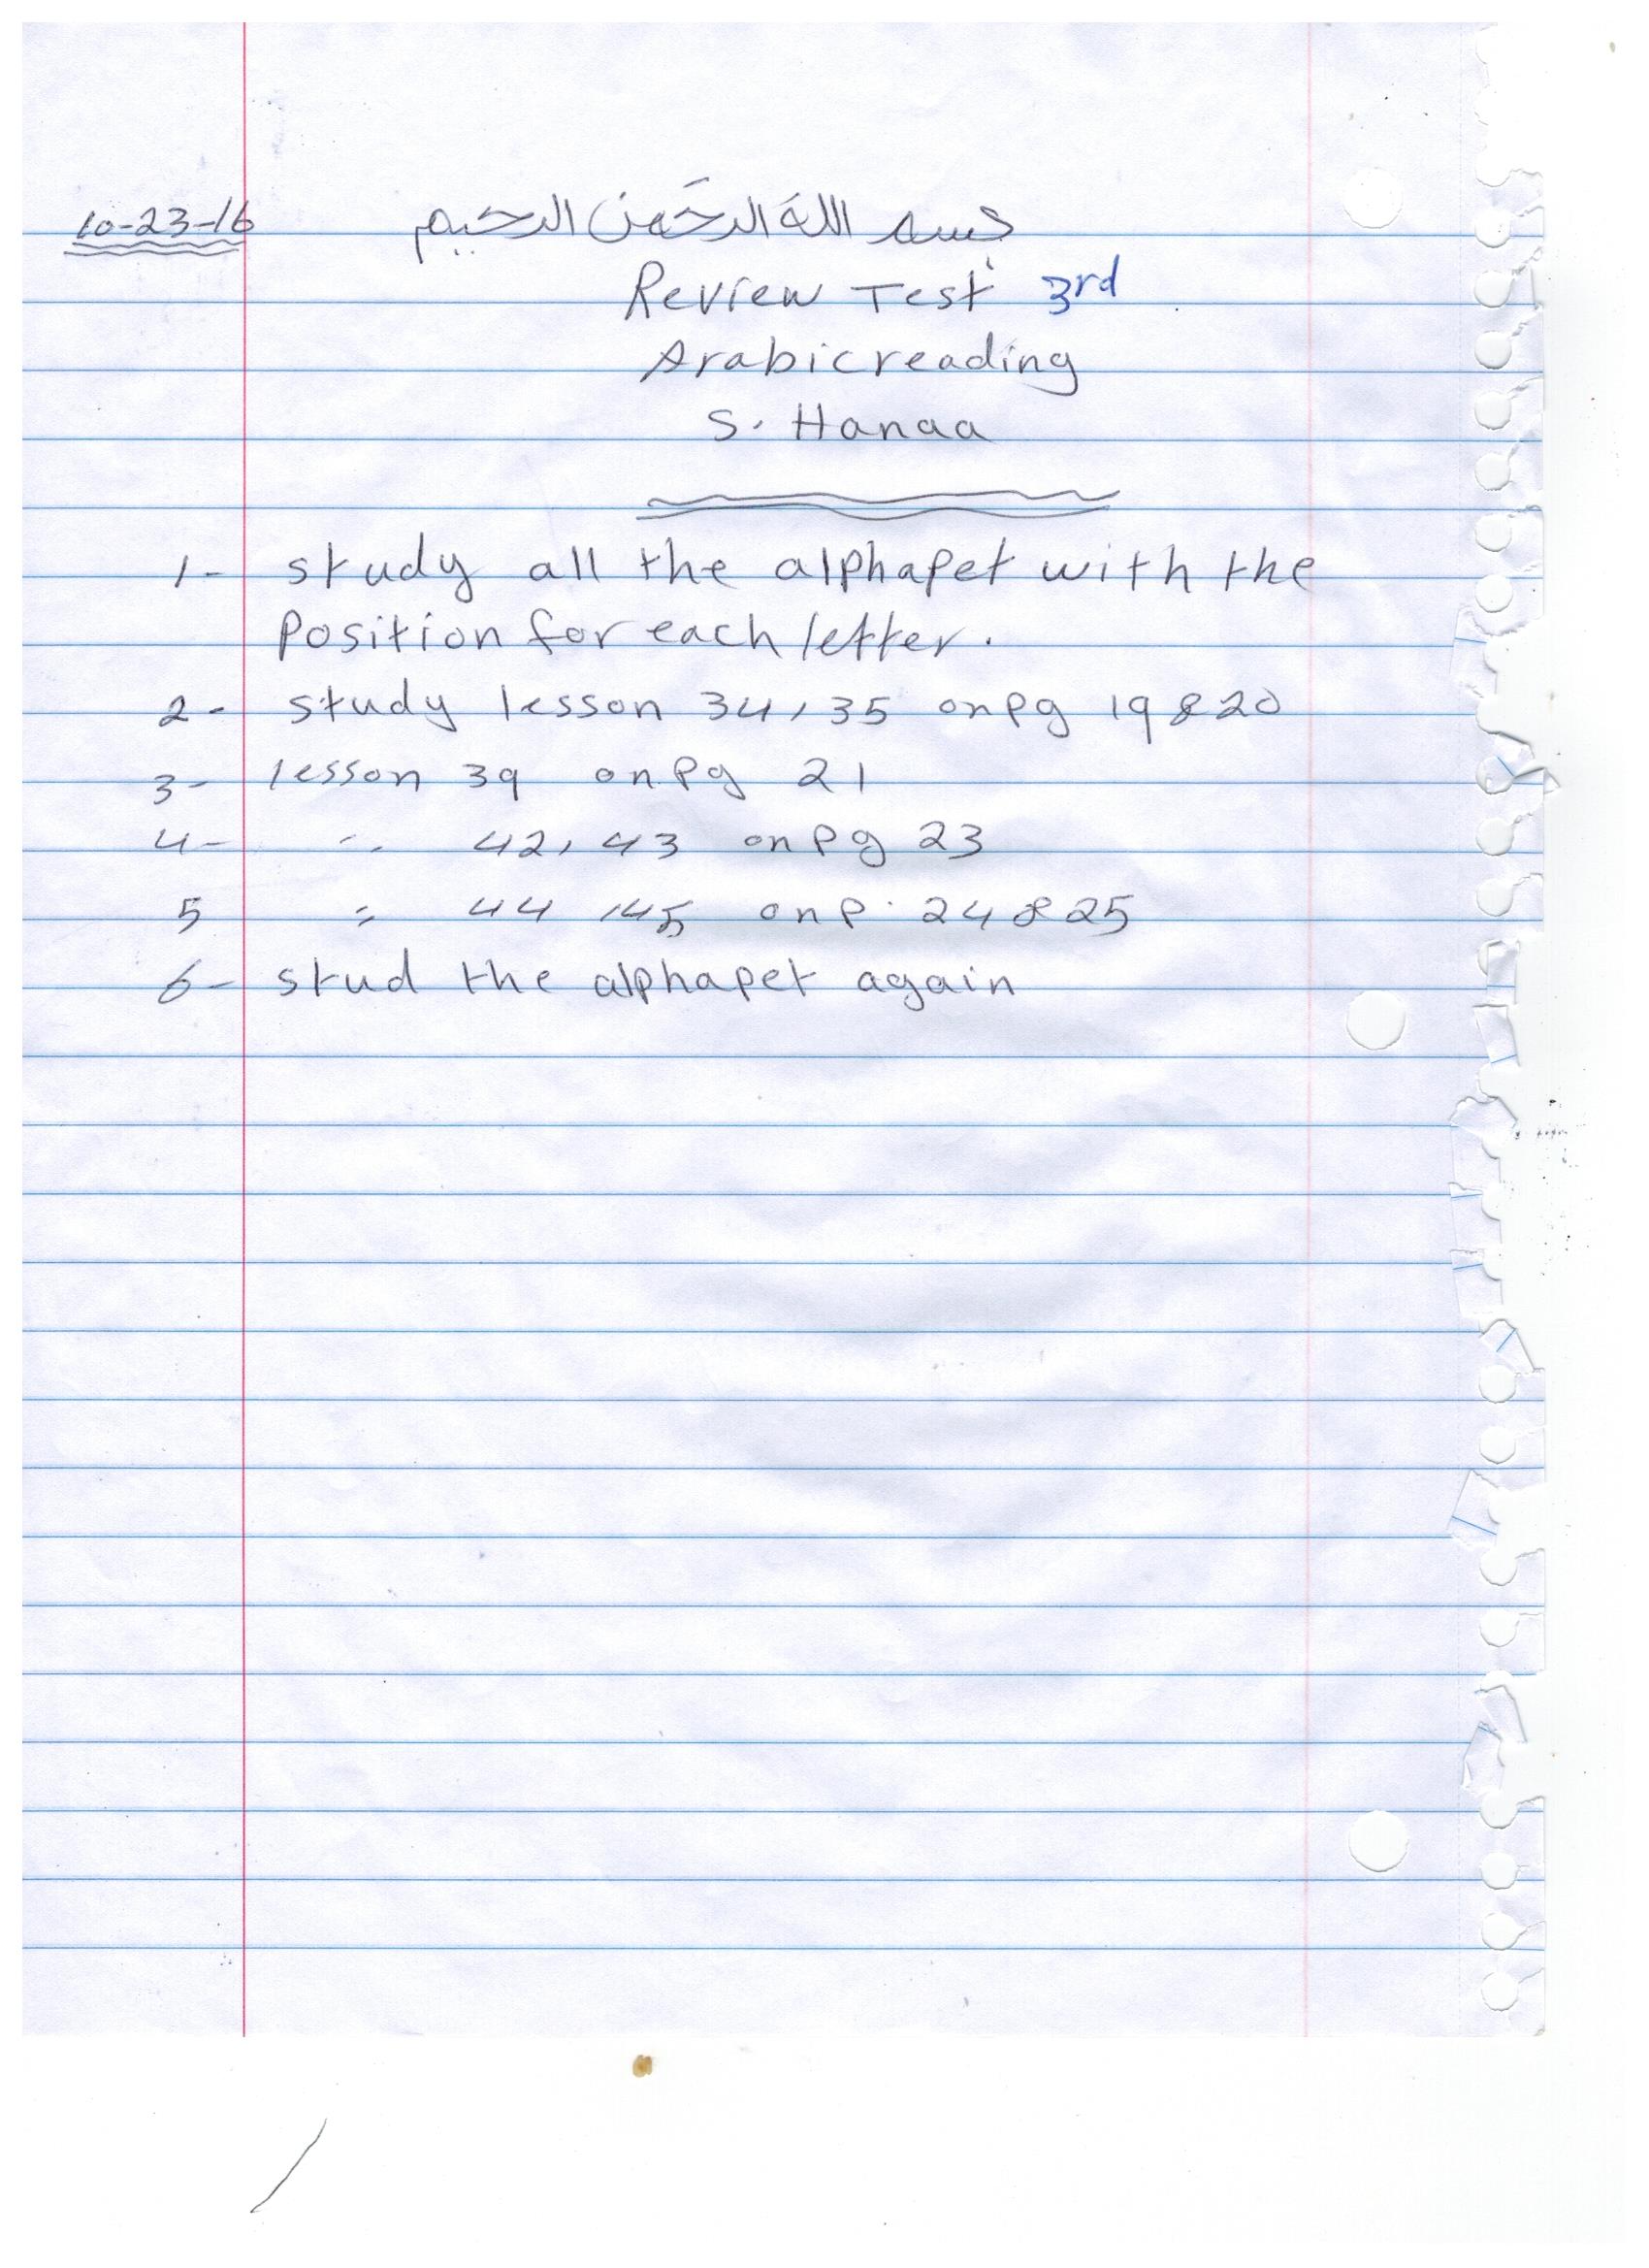 10-23-16 بسم الله الرحمن الرحيم
Review Test 3rd
Arabic reading
S. Hanaa
1- study all the alphapet with the
Position for each letter.
2- study lesson 34, 35 on pg 19 & 20
3- lesson 39 on Pg 21
4- " 42, 43 on Pg 23
5 " 44, 45 on P. 24 & 25
6- stud the alphapet again